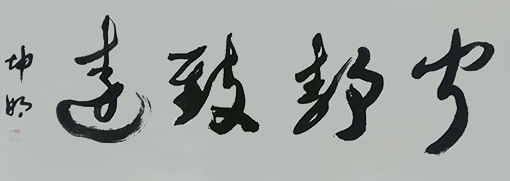 宁静致远
坤明